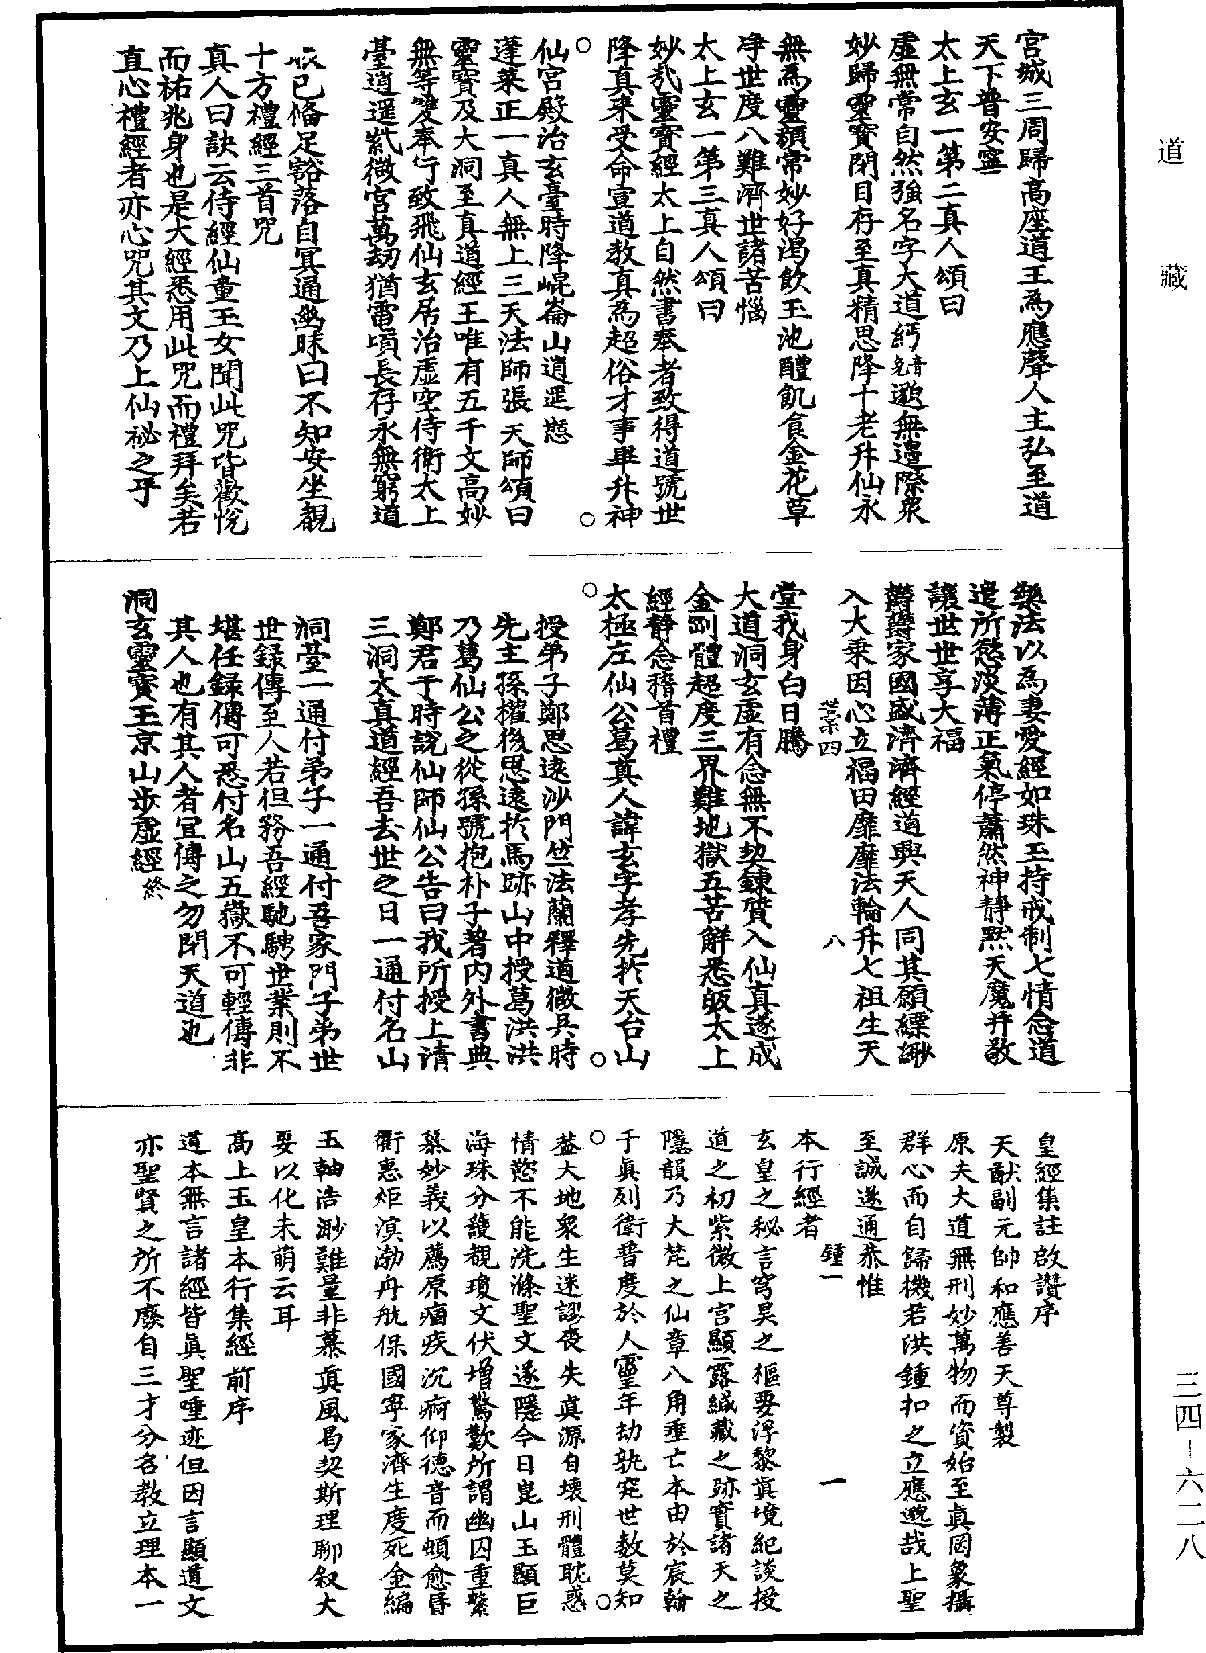 道藏
宮城三周歸高座道王為應聲人主弘至道
天下普安寧
太上玄一第二真人頌曰
虛無常自然強名字大道紆邈無邊際衆
妙歸靈寶閉目存至真精思降十老升仙永
無為靈顏常妙好渴飲玉池醴飢食金花草
净世度八難濟世諸苦惱
太上玄一第三真人頌曰
妙哉靈寶經太上自然書奉者致得道號世
降真來受命宣道教真為超俗才事畢升神
仙宮殿治玄臺時降崐崙山逍遥
蓬萊正一真人無上三天法師張天師頌曰
靈寶及大洞至真道經王唯有五千文高妙
無等雙奉行致飛仙玄居治虛空侍衛太上
臺逍遥紫微宮萬劫猶電頃長存永無窮道
已備足豁落自冥通幽昧曰不知安坐觀
十方禮經三首咒
真人曰訣云侍經仙童玉女聞此咒皆歡悅
而祐兆身也是大經悉用此咒而禮拜矣若
直心禮經者亦心咒其文乃上仙祕之乎
樂法以為妻愛經如珠玉持戒制七情念道
遣所慾淡薄正氣停蕭然神靜黙天魔并敬
護世世享大福
鬱鬱家國盛濟濟經道興天人同其願縹緲
入大乗因心立福田靡靡法輪升七祖生天
堂我身白日騰
大道洞玄虛有念無不契鍊質入仙真遂成
金剛體超度三界難地獄五苦解悉皈太上
經靜念稽首禮
太極左仙公葛真人諱玄字孝先於天台山
授弟子鄭思遠沙門竺法蘭釋道微吳時
先主孫權後思遠於馬跡山中授葛洪洪
乃葛仙公之從孫號抱朴子著内外書典
鄭君于時說仙師仙公告曰我所授上清
三洞太真道經吾去世之日一通付名山
洞臺一通付弟子一通付吾家門子弟世
世録傳至人若但務吾經馳騁世業則不
堪任録傳可悉付名山五嶽不可輕傳非
其人也有其人者宜傳之勿閉天道也
洞玄靈寶玉京山步虛經終
皇經集註啟讚序
天猷副元帥和應善天尊製
原夫大道無刑妙萬物而資始至眞罔象攝
群心而自歸機若洪鍾扣之立應邈哉上聖
至誠遂通恭惟
本行經者
玄皇之秘言穹昊之樞要浮黎眞境紀談授
道之初紫微上宮顯露緘藏之跡實諸天之
隱韻乃大梵之仙章八角垂亡本由於宸翰
于眞列衛普度於人靈年劫孰窕世數莫知
蓋大地衆生迷謬喪失真源自壞刑體耽惑
情慾不能洗滌聖文遂隱今日崑山玉顯巨
海珠分護覩瓊文伏增驚歎所謂幽囚重繫
慕妙義以薦原痼疾沉痾仰德音而頓愈昏
衢惠炬溟渤舟航保國寧家濟生度死金編
玉軸浩渺難量非慕眞風曷契斯理聊叙大
要以化未萌云耳
高上玉皇本行集經前序
道本無言諸經皆眞聖唾迹但因言顯道文
亦聖賢之所不廢自三才分名教立理本一
八
鍾一
一
三四—六二八